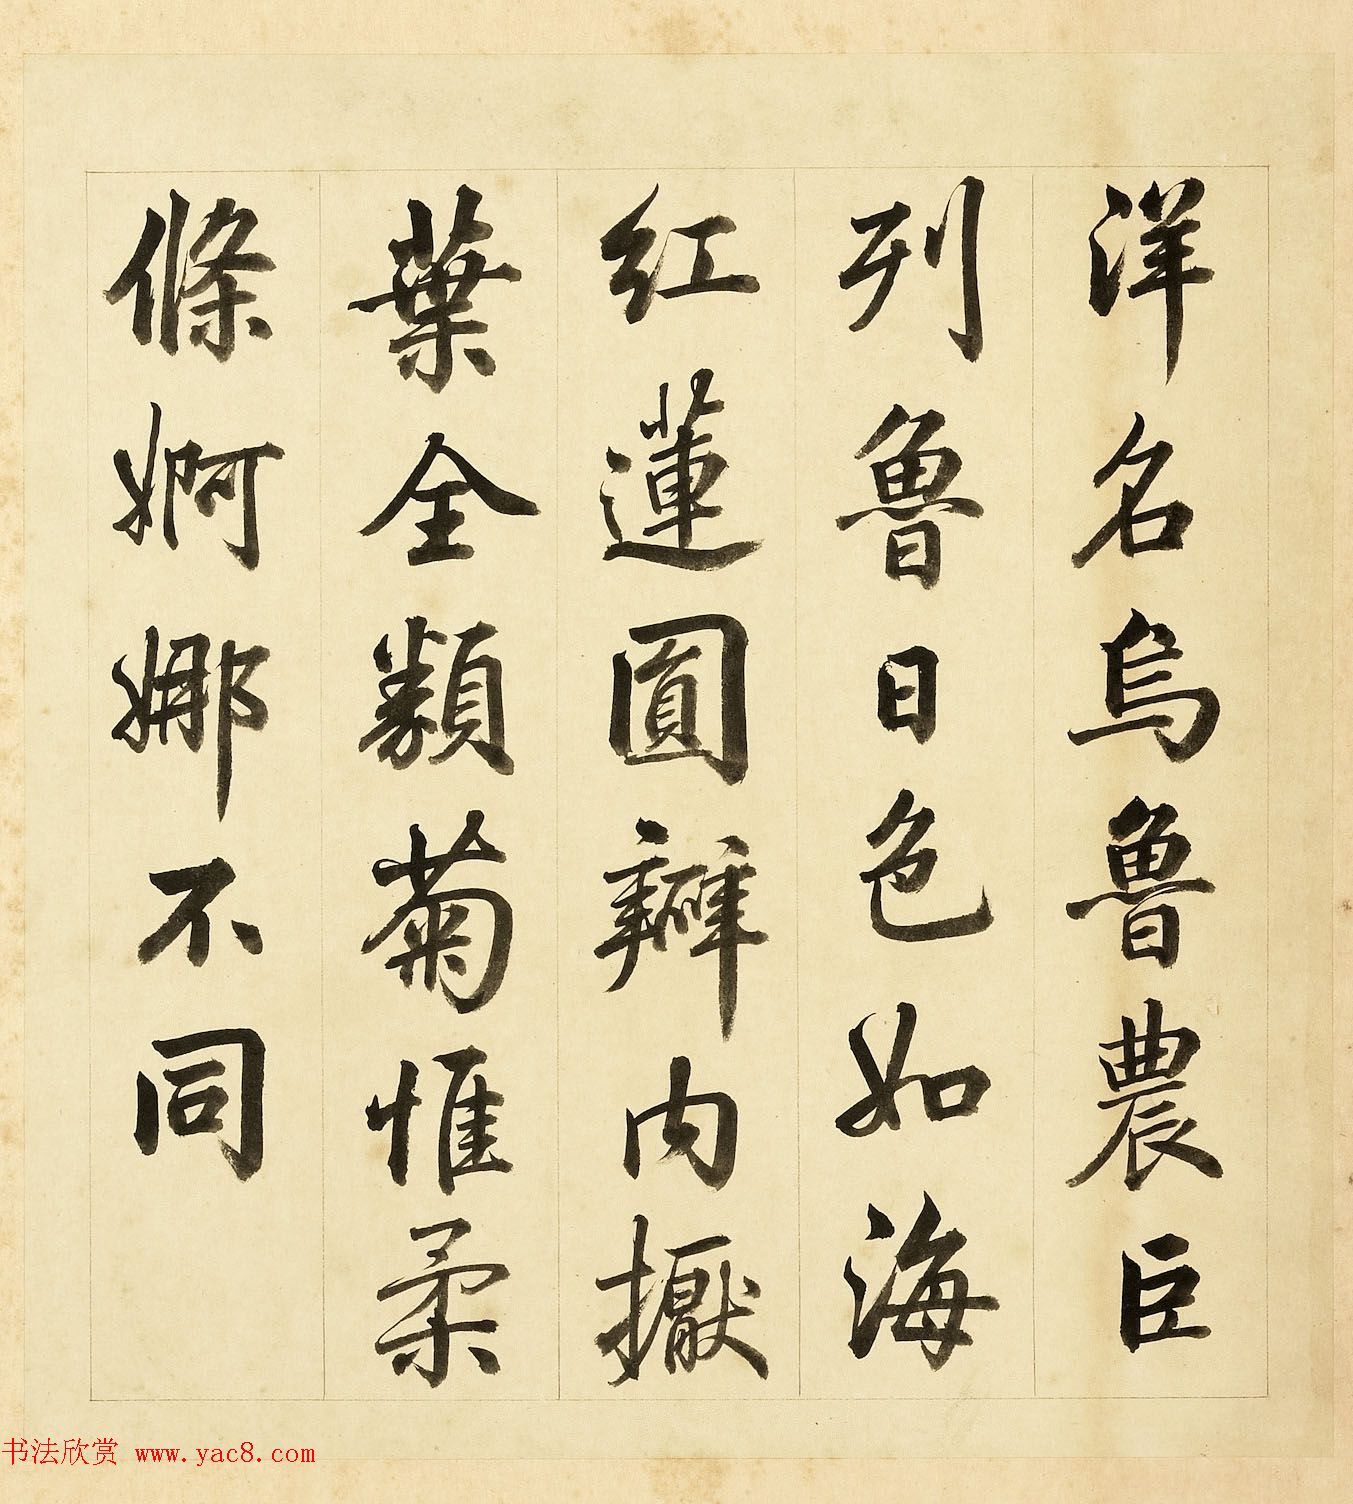 洋名烏魯農臣
列魯日色如海
紅蓮圓瓣內擫
葉全類菊惟柔
條婀娜不同
书法欣赏 www.yac8.com